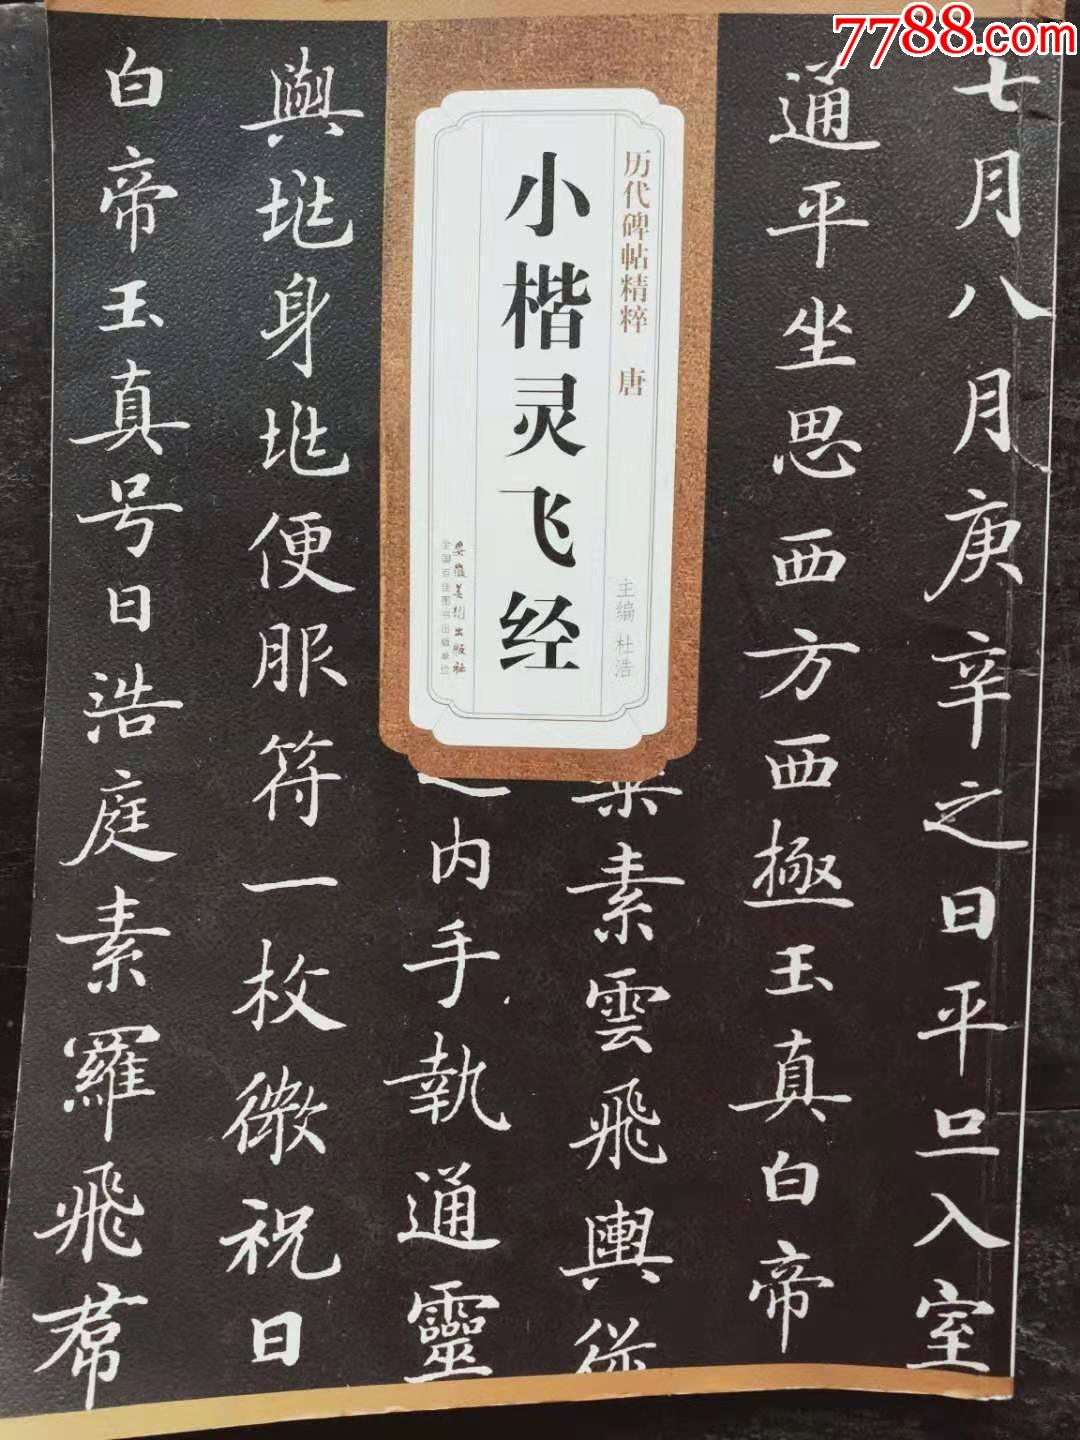 7788.com
历代碑帖精粹 唐
小楷灵飞经
主编 杜浩
安徽美术出版社
全国百佳图书出版单位
七月八月庚辛之日平旦入室
通平坐思西方西極玉真白帝
素雲飛輿從
内手執通靈
與兆身兆便服符一枚微祝曰
白帝玉真号曰浩庭素羅飛帬